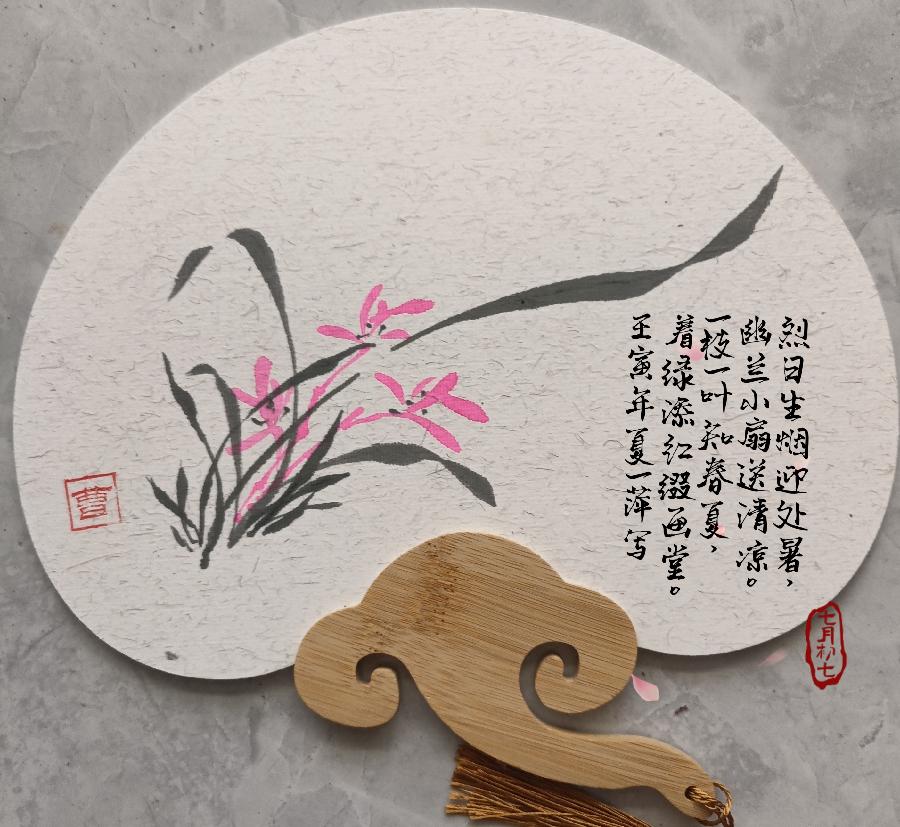 烈日生烟迎处暑，
幽兰小扇送清凉。
一枝一叶知春夏，
着绿添红缀画堂。
壬寅年夏一萍写
七月初七
曹